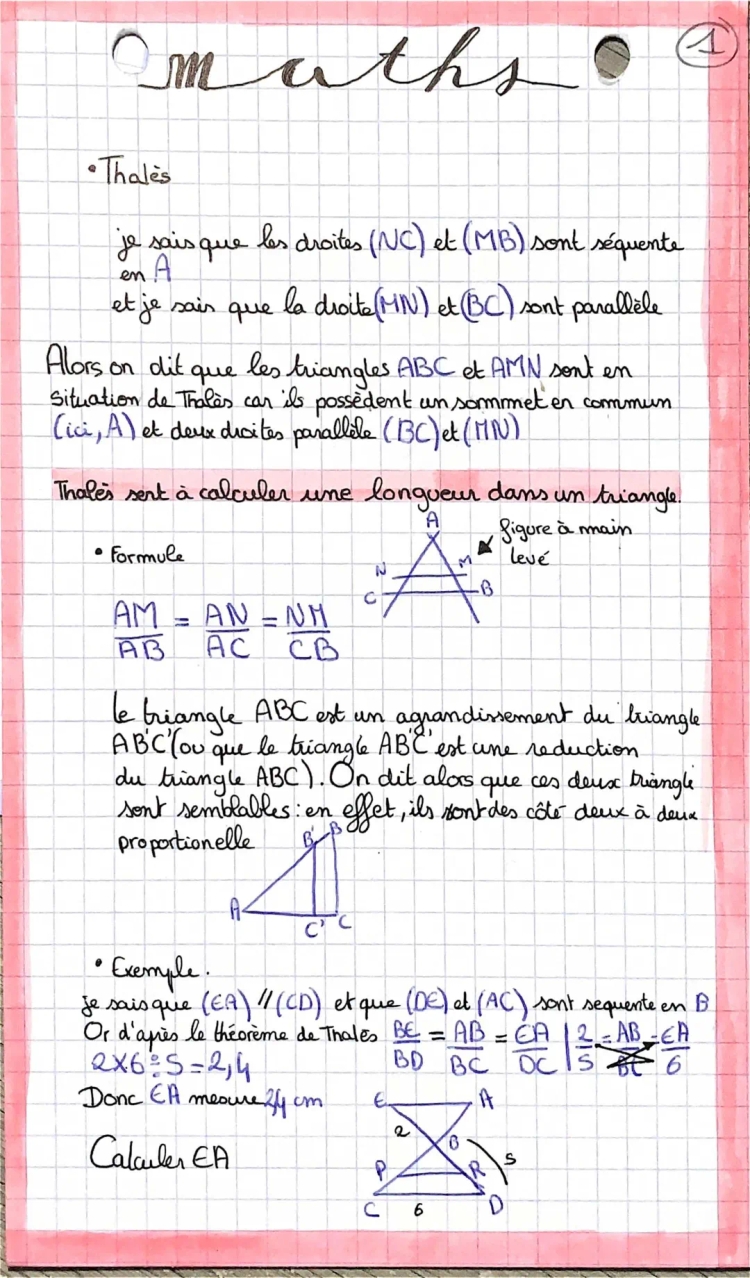 maths
1
• Thalès
je sais que les droites (NC) et (MB) sont séquente
en A
et je sais que la droite (MN) et (BC) sont parallèle
Alors on dit que les triangles ABC et AMN sont en
situation de Thalès car ils possèdent un sommmet en commun
(ici, A) et deux droites parallèle (BC) et (MN)
Thalès sert à calculer une longueur dans un triangle.
• Formule
figure à main
levé
A
N M
C B
AM/AB = AN/AC = NM/CB
le triangle ABC est un agrandissement du triangle
AB'C' (ou que le triangle AB'C' est une reduction
du triangle ABC). On dit alors que ces deux triangle
sont semblables : en effet, ils sont des côté deux à deux
proportionelle
B' B
A
C' C
• Exemple.
je sais que (EA) // (CD) et que (DE) et (AC) sont sequente en B
Or d'après le théorème de Thalès BE/BD = AB/BC = EA/DC | 2/5 = AB/BC = EA/6
2x6÷5 = 2,4
Donc EA mesure 2,4 cm
Calculer EA
E A
2 B
5
P R
C 6 D